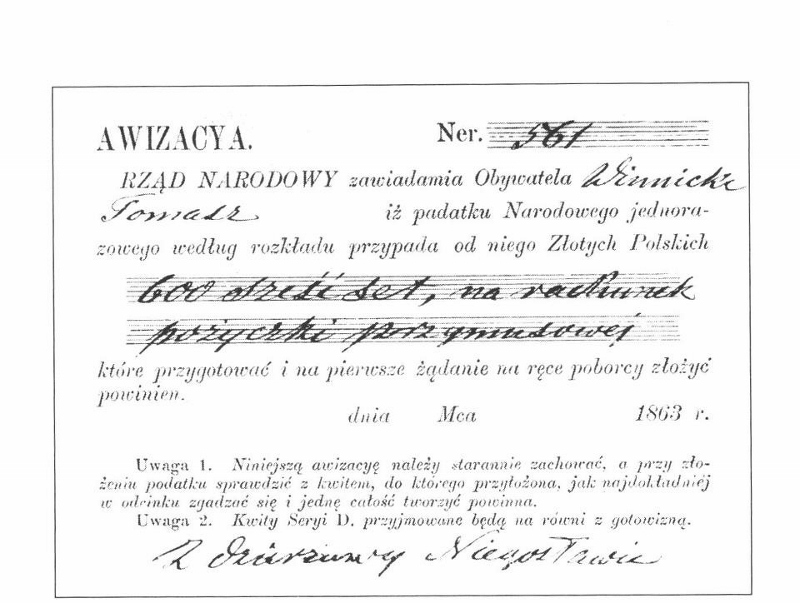 AWIZACYA. Ner. 561
RZĄD NARODOWY zawiadamia Obywatela Winnicki
Tomasz iż padatku Narodowego jednora-
zowego według rozkładu przypada od niego Złotych Polskich
600 sześć set, na rachunek
pożyczki przymusowej
które przygotować i na pierwsze żądanie na ręce poborcy złożyć
powinien.
dnia Mca 1863 r.
Uwaga 1. Niniejszą awizacyę należy starannie zachować, a przy zło-
żeniu podatku sprawdzić z kwitem, do którego przyłożona, jak najdokładniej
w odcinku zgadzać się i jednę całość tworzyć powinna.
Uwaga 2. Kwity Seryi D. przyjmowane będą na równi z gotowizną.
Z dzierżawy